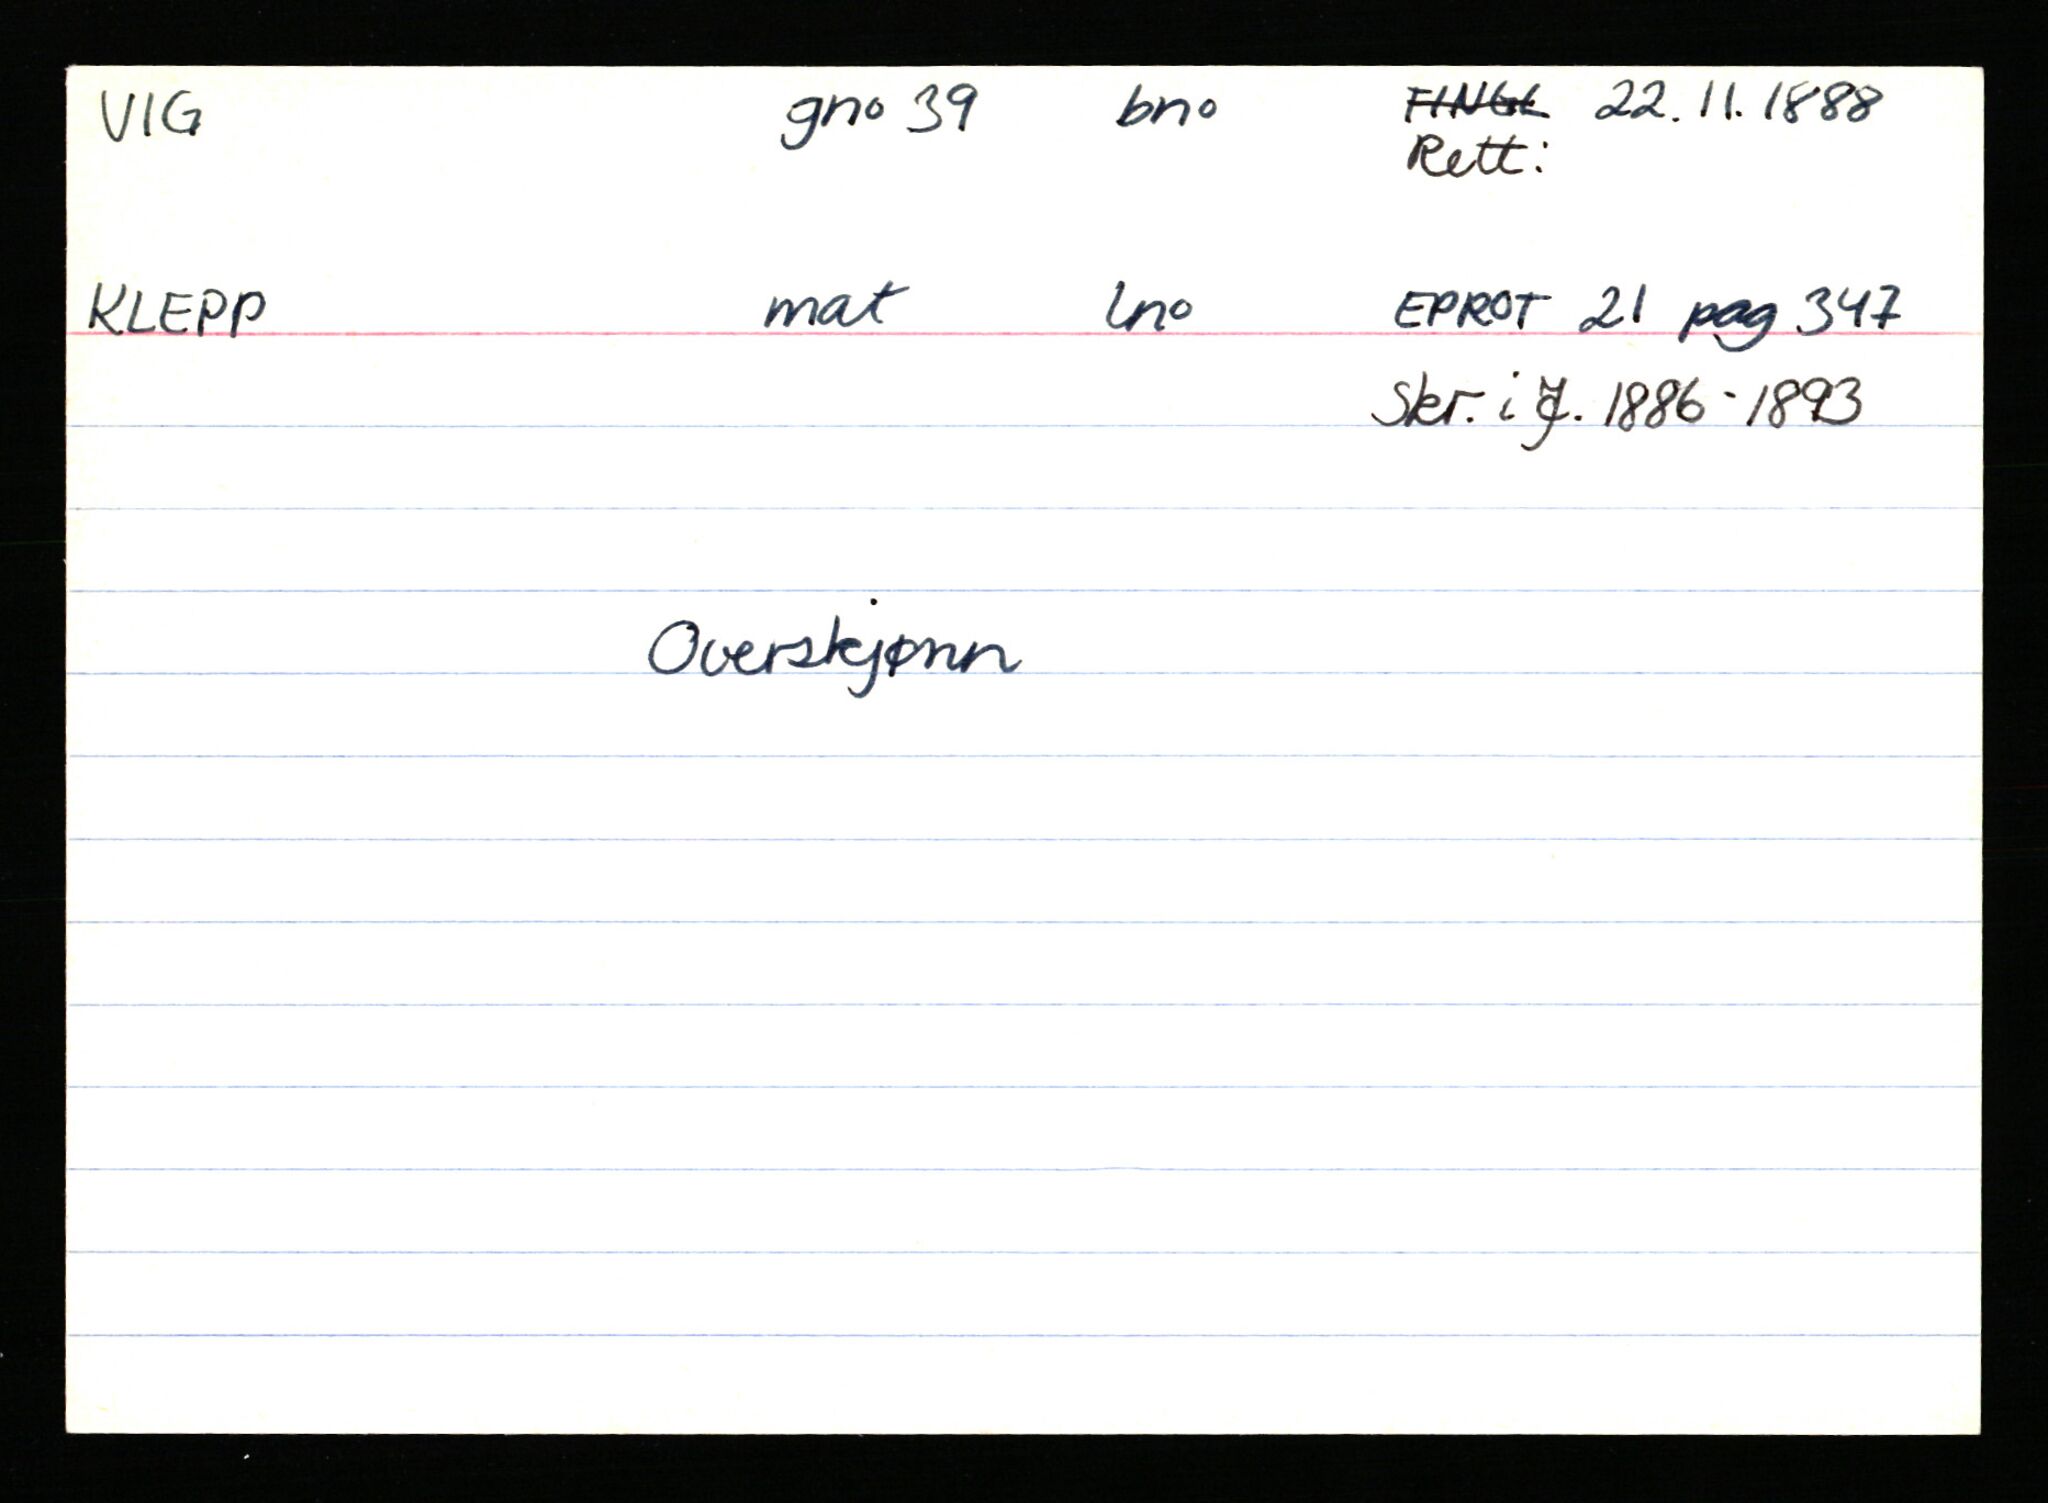 VIG gno 39 bno TINGL 22.11.1888
Rett:
KLEPP mat lno EPROT 21 pag 347
Skr. i J. 1886-1893
Overskjønn